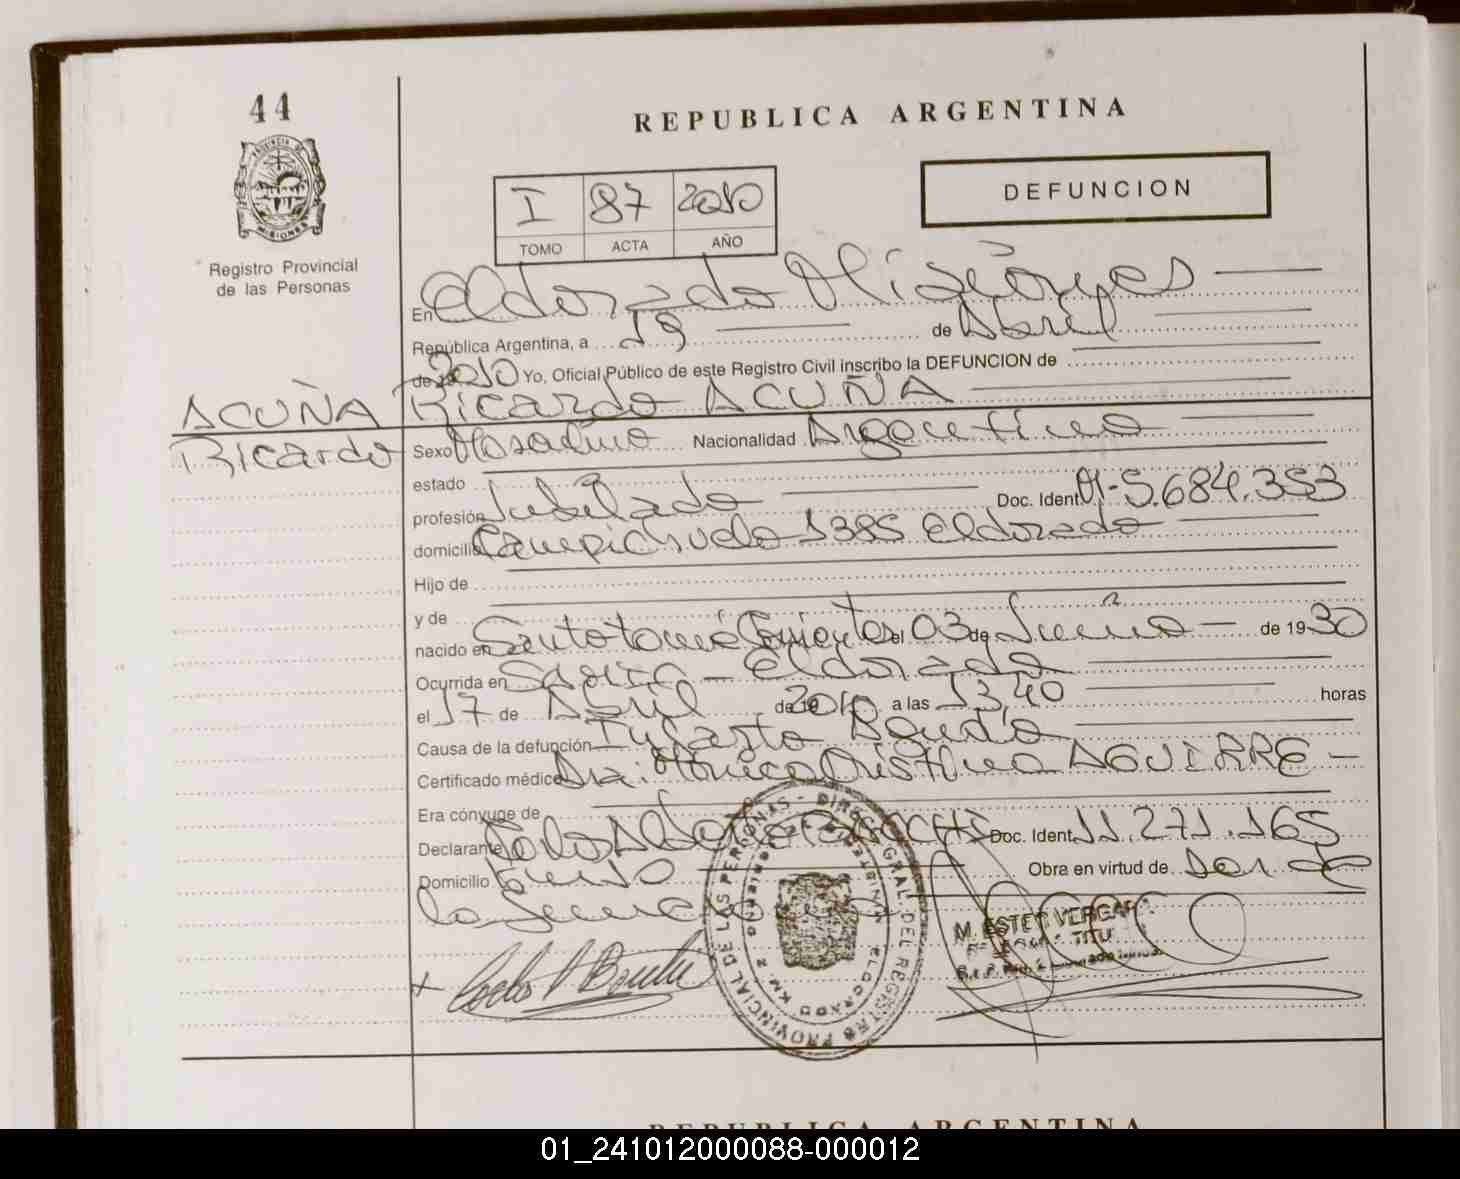 44
REPUBLICA ARGENTINA
PROVINCIA DE
MISIONES
Registro Provincial
de las Personas
I 87 2010
TOMO ACTA AÑO
DEFUNCION
En Eldorado Misiones
República Argentina, a 19 de Abril
de 2010 Yo, Oficial Público de este Registro Civil inscribo la DEFUNCION de
ACUÑA Ricardo ACUÑA
Ricardo
Sexo Masculino Nacionalidad Argentino
estado
profesión Jubilado Doc. Ident. M-5.684.353
domicilio Campichuelo 1385 Eldorado
Hijo de
y de
nacido en Santo tomé Corrientes el 03 de Junio de 1930
Ocurrida en Eldorado
el 17 de Abril de 2010 a las 13,40 horas
Causa de la defunción Infarto Agudo
Certificado médico Dra. Monica Cristina AGUIRRE
Era cónyuge de
Declarante Alberto Doc. Ident. 11.271.165
Domicilio Obra en virtud de
la
DIREC. GRAL. DEL REGISTRO PROVINCIAL DE LAS PERSONAS
ELDORADO KM. 2
M. ESTER VERGARA
REPUBLICA ARGENTINA
01_241012000088-000012